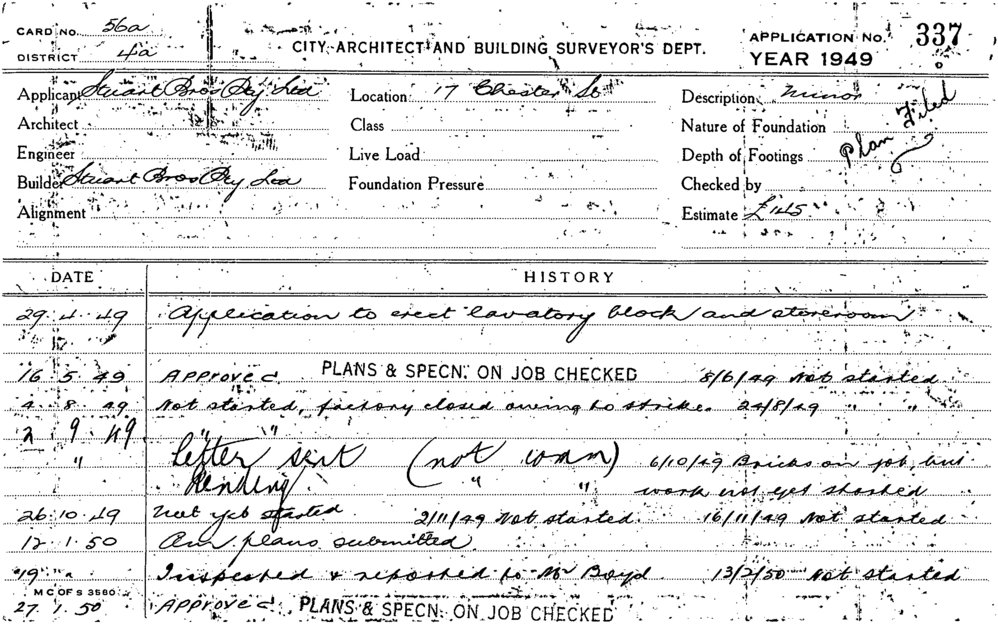 CARD NO. 56a
DISTRICT 4a
CITY ARCHITECT AND BUILDING SURVEYOR'S DEPT.
APPLICATION NO. 337
YEAR 1949
Applicant Stuart Bros Pty Ltd
Location 17 Chester St
Description Minor
Architect
Class
Nature of Foundation
Plan Filed
Engineer
Live Load
Depth of Footings
Builder Stuart Bros Pty Ltd
Foundation Pressure
Checked by
Alignment
Estimate £145
DATE HISTORY
29.4.49 Application to erect lavatory block and storeroom
16.5.49 Approved. PLANS & SPECN. ON JOB CHECKED 8/6/49 Not started
4.8.49 Not started, factory closed owing to strike. 24/8/49 " "
2.9.49 " "
" letter sent (not com) 6/10/49 Bricks on job, but
Pending. " " work not yet started
26.10.49 Not yet started 2/11/49 Not started. 16/11/49 Not started
12.1.50 Am plans submitted
19 " " Inspected & reported to Mr Boyd. 13/2/50 Not started
M C OF S 3580
27.1.50 Approved. PLANS & SPECN. ON JOB CHECKED